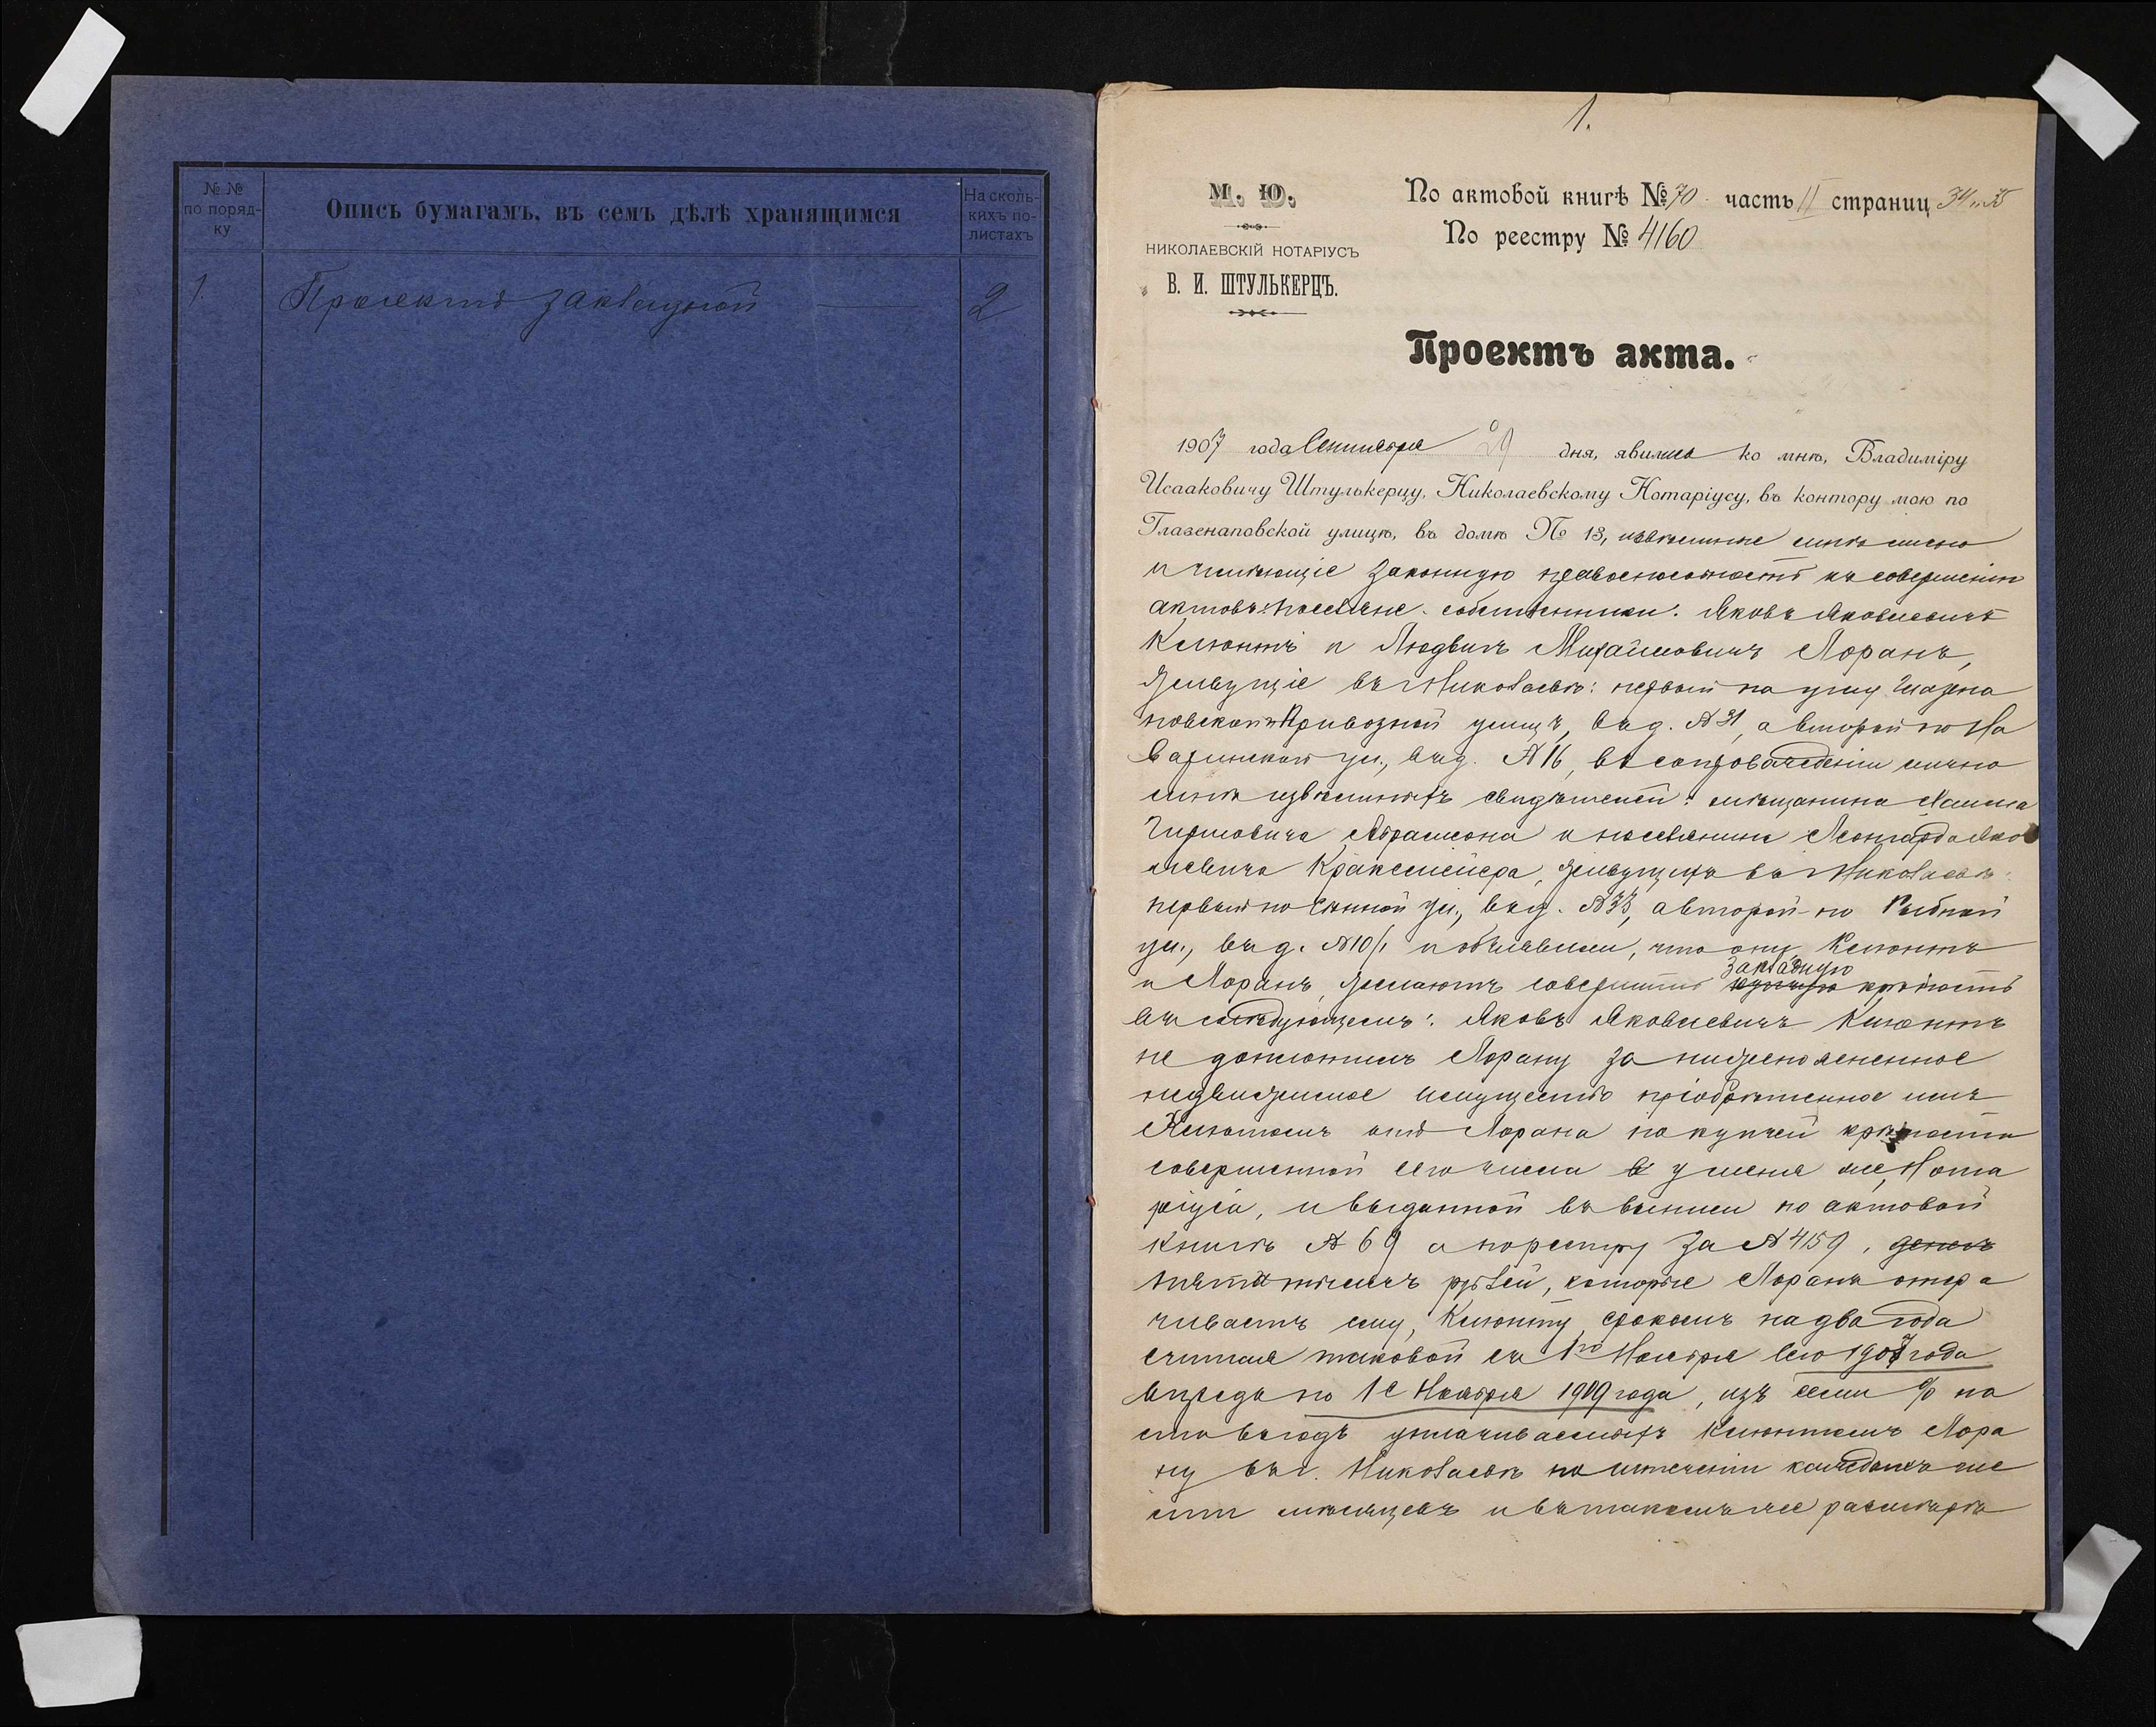 № №
по поряд-
ку
Опись бумагамъ, въ семъ дѣлѣ хранящимся
На сколь-
кихъ по-
листахъ
1.
Проектъ закладной
2
1.
М. Ю.
НИКОЛАЕВСКІЙ НОТАРІУСЪ
В. И. ШТУЛЬКЕРЦЪ.
По актовой книгѣ № 70 часть II страниц 34 и 35
По реестру № 4160
Проектъ акта.
1907 года Сентября 29 дня, явились ко мнѣ, Владиміру
Исааковичу Штулькерцу, Николаевскому Нотаріусу, въ контору мою по
Глазенаповской улицѣ, въ домѣ № 13, извѣстные мнѣ лично
и имѣющіе законную правоспособность къ совершенію
актовъ: поселяне собственники: Яковъ Яковлевичъ
и Людвигъ Михайловичъ Лоранъ,
живущіе въ Николаевѣ: первый на углу
и Привозной улицъ, въ д. № 31, а второй по На
варинской ул., въ д. № 16, въ сопровожденіи лично
мнѣ извѣстныхъ свидѣтелей: мѣщанина Хаима
Гиршовича Абрамсона и поселянина Леонгарда Яко
влевича живущихъ въ Николаевѣ:
первый по Сѣнной ул., въ д. № 33, а второй по Рыбной
ул., въ д. № 10/1 и объявили, что они,
и Лоранъ, желаютъ совершить купчую закладную крѣпость
въ слѣдующемъ: Яковъ Яковлевичъ
не доплотилъ Лорану за нижепоясненное
недвижимое имущество пріобрѣтенное имъ
отъ Лорана по купчей крѣпости
совершенной сего числа у меня же, Нота
ріуса, и выданной въ выписи по актовой
книгѣ № 69 и по реестру за № 4159, денегъ
пять тысячъ рублей, которые Лоранъ отсро
чиваетъ ему, срокомъ на два года
считая таковой съ 1го Ноября сего 1907 года
впредь по 1е Ноября 1909 года, изъ семи % на
сто въ годъ уплачиваемыхъ Лора
ну въ г. Николаевѣ по истеченіи каждыхъ ше
сти мѣсяцевъ и въ такомъ же размѣрѣ